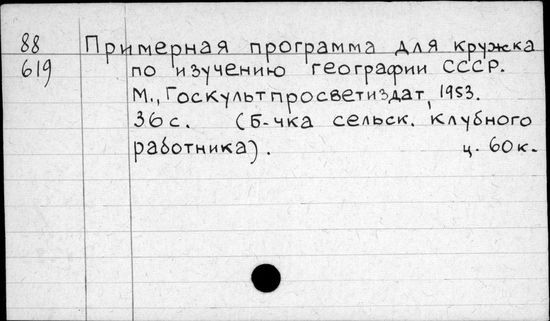 88 Примерная программа для кружка
619 по изучению географии СССР.
М., Госкультпросветиздат, 1953.
36 с. (Б-чка сельск. клубного
работника). ц. 60 к.